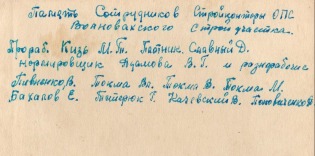 Память Сотрудников Стройконторы ОПС
Волновахского Стройучастка.
Прораб. Кизь М. П. Плотник Славный Д.
нормировщик Адамова В. Г. и разнорабочие
Пивненко В. Токма Вл. Токма В. Токма М.
Бахалов Е. Титерюк Г. Качевский В. Поноваленко